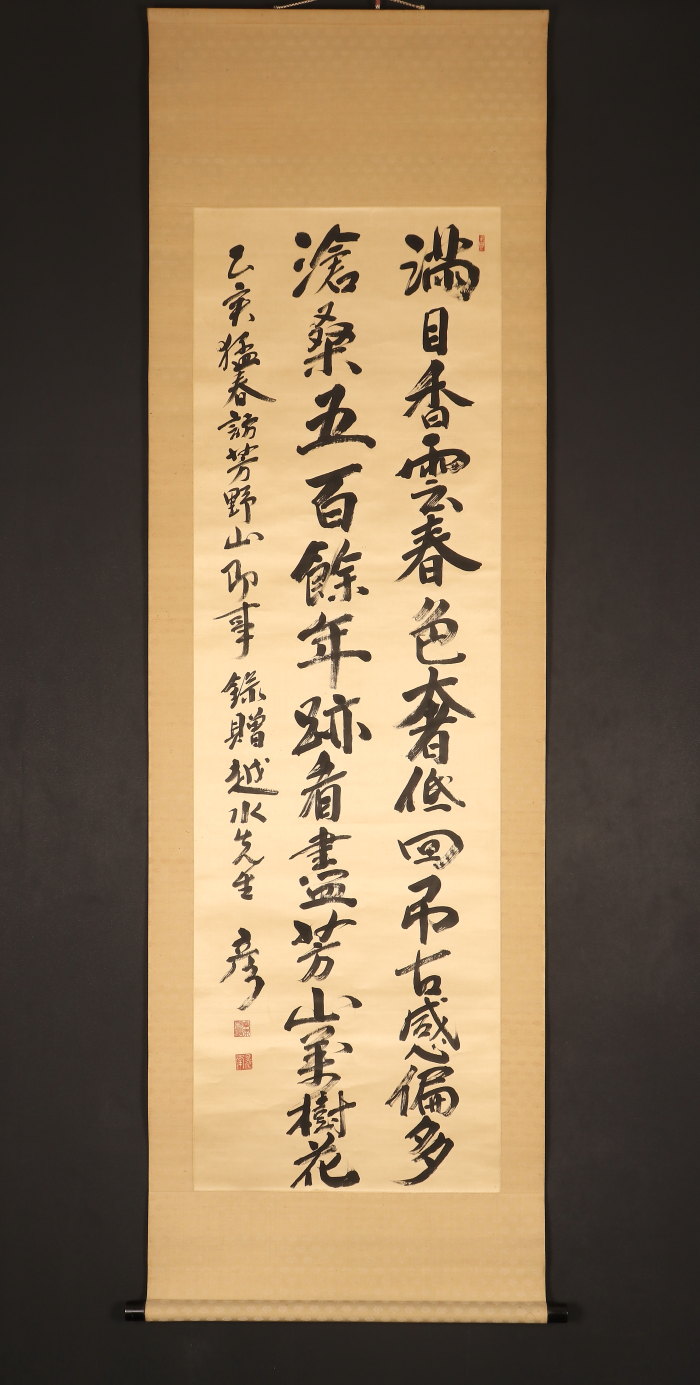 満目香雲春色奢低回吊古感偏多
滄桑五百餘年跡看盡芳山萬樹花
乙亥猛春訪芳野山即事 錄贈越水先生 彦